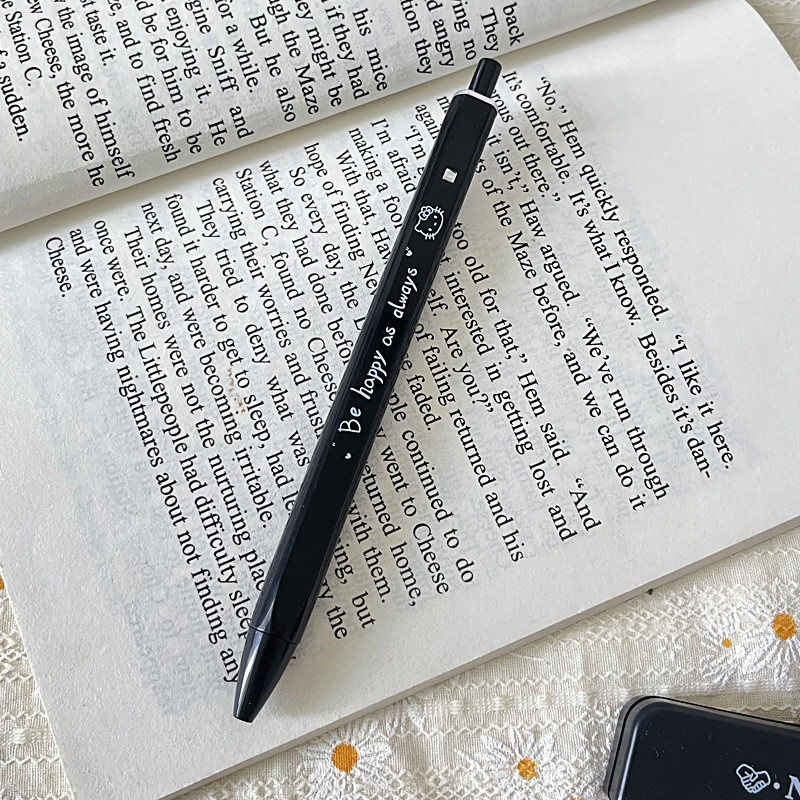 back
They
ving no
and angry
his mice
if they had
they might be
gh the Maze
But he also
for a while.
gine Sniff and
enjoying it. He
d be for him to be
e, and to find fresh
t taste it.
the image of himself
ew Cheese, the more he
e Station C.
of a sudden.
“No,” Hem quickly responded. “I like it here.
It’s comfortable. It’s what I know. Besides it’s dan-
ous out there.”
isn’t,” Haw argued. “We’ve run through
ts of the Maze before, and we can do it
again
too old for that,” Hem said. “And
I’m afraid interested in getting lost and
making a foo self. Are you?”
With that, Haw of failing returned and his
hope of finding Ne faded.
So every day, the L ople continued to do
what they had done before y went to Cheese
Station C, found no Cheese eturned home,
carrying their worries and frus with them.
They tried to deny what was ning, but
found it harder to get to sleep, had le ry the
next day, and were becoming irritable.
Their homes were not the nurturing plac
once were. The Littlepeople had difficulty sleep
and were having nightmares about not finding any
Cheese.
Be happy as always